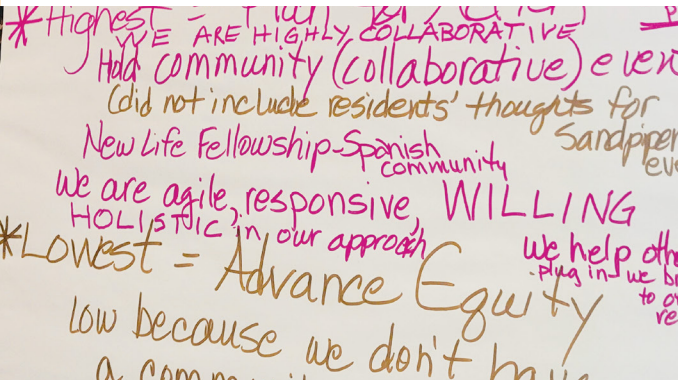 *Highest =
WE ARE HIGHLY COLLABORATIVE
Hold community (collaborative) even
(did not include residents' thoughts for
Sandpiper
eve
New Life Fellowship-Spanish
community
We are agile, responsive, WILLING
HOLISTIC in our approach
we help othe
-plug in- we br
to o
re
*Lowest = Advance Equity
low because we don't have
a communi